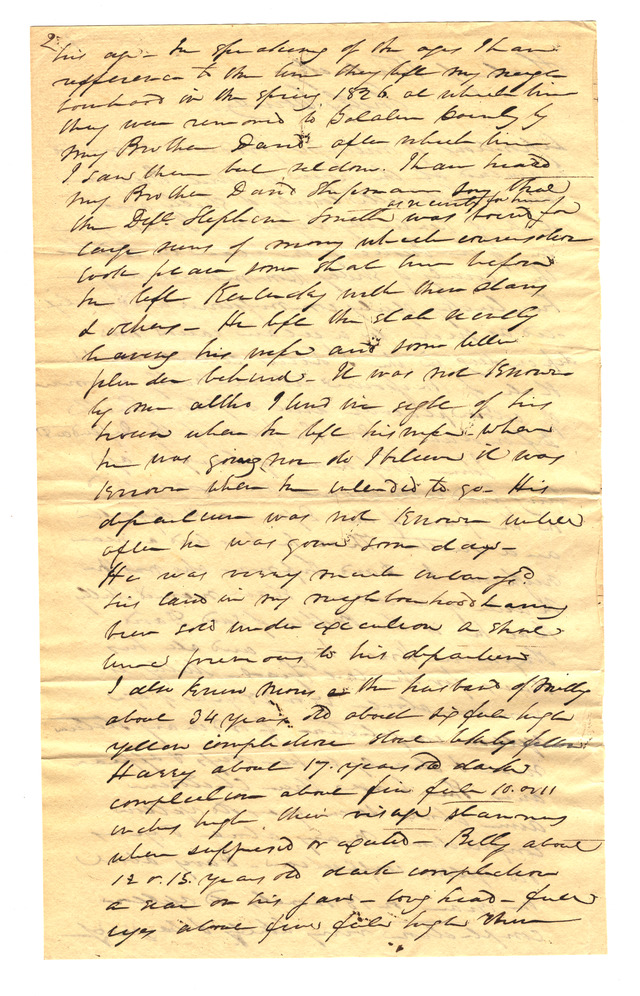 2
his age - In speaking of the ages I have
refference to the time they left my neigh
bourhood in the spring 1826 at which time
they were removed to Galatin County by
my Brother David after which time
I saw them but seldom. I have heard
my Brother David Shipman say that
the Deft. Stephen Smith as security for him was bound for
large sums of money which conversation
took place some short time before
he left Kentucky with these slaves
& others - He left the state secretly
leaving his wife and some little
plunder behind - It was not known
by me altho I lived in sight of his
house when he left his wife where
he was going nor do I believe it was
known where he intended to go - His
departure was not known untill
after he was gone some days -
He was verry much embarasd.
his land in my neighbourhood having
been sold under execution a short
time previous to his departure
I also knew Moses the husband of Milly
about 34 years old about six feet high
yellow complection stout likely fellow
Harry about 17 years old dark
complection about five feet 10 or 11
inches high thin visage stammers
when surprised or exited - Billy about
12 or 15 years old dark complection
a scar on his face - long head - full
eyes about five feet high thin